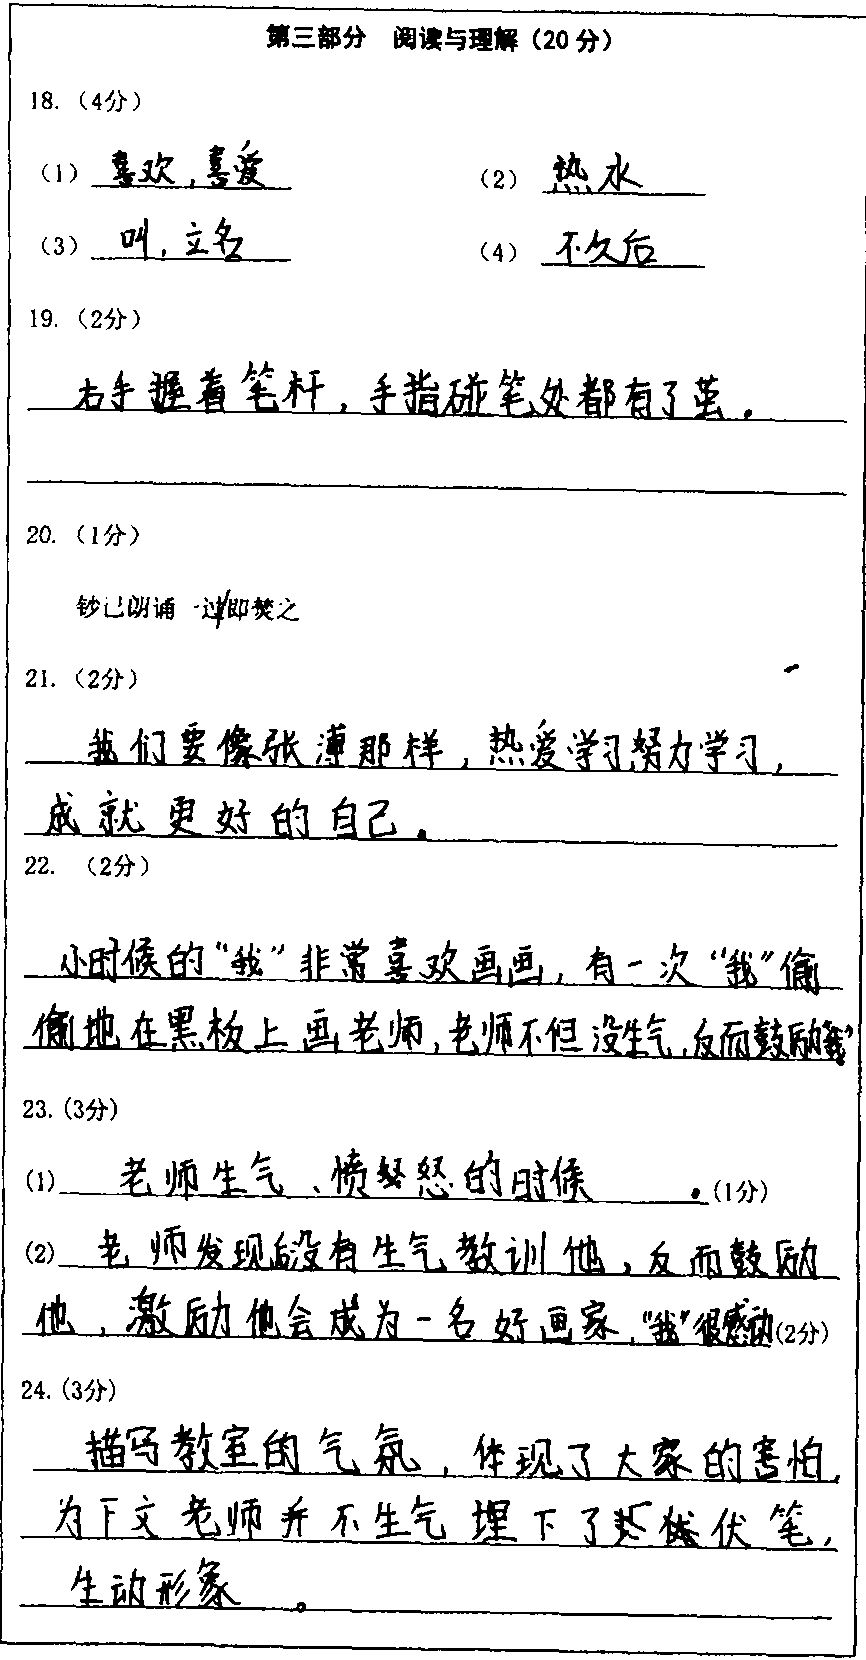 第三部分 阅读与理解（20分）
18.（4分）
（1）喜欢，喜爱 （2）热水
（3）叫，立名 （4）不久后
19.（2分）
右手握着笔杆，手指碰笔处都有了茧。
20.（1分）
钞已朗诵一过/即焚之
21.（2分）
我们要像张溥那样，热爱学习努力学习，
成就更好的自己。
22.（2分）
小时候的“我”非常喜欢画画，有一次“我”偷
偷地在黑板上画老师，老师不但没生气，反而鼓励“我”
23.(3分)
(1) 老师生气、愤怒的时候。(1分)
(2) 老师发现后没有生气教训他，反而鼓励
他，激励他会成为一名好画家，“我”很感动(2分)
24.(3分)
描写教室的气氛，体现了大家的害怕，
为下文老师并不生气埋下了伏笔，
生动形象。